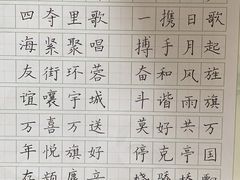 歌起旌旗万国飘
日月风雨共亭
携手和谐好克
一搏奋斗莫停
歌唱蓉城送好音
里聚环宇万旗
夺紧街襄喜悦频
四海友谊万年存